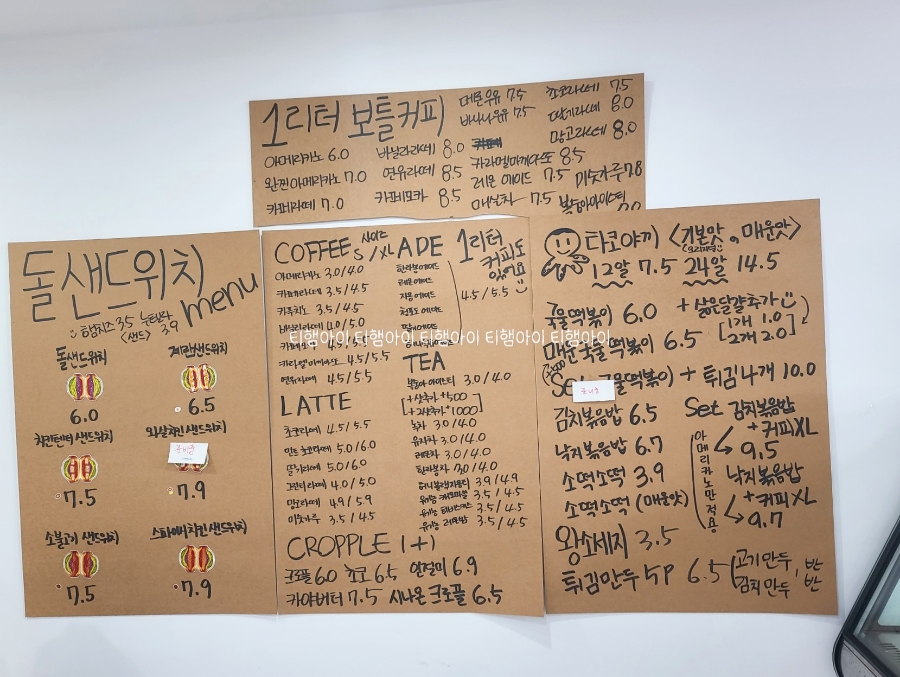 1리터 보틀커피
아메리카노 6.0
왼찐아메리카노 7.0
카페라떼 7.0
바닐라라떼 8.0
연유라떼 8.5
카페모카 8.5
메론우유 7.5
바나나우유 7.5
카라멜마끼아또 8.5
레몬 에이드 7.5
매실차 7.5
초코라떼 7.5
딸기라떼 8.0
망고라떼 8.0
미숫가루 7.8
복숭아아이스티
돌샌드위치
menu
햄치즈 3.5
<샌드> 3.9
돌샌드위치
6.0
계란샌드위치
6.5
치킨텐더 샌드위치
7.5
와살치킨샌드위치
준비중
7.9
소불고기 샌드위치
7.5
스파이시치킨샌드위치
7.9
COFFEE 사이즈 S/XL
아메리카노 3.0/4.0
카페라떼 3.5/4.5
카푸치노 3.5/4.5
바닐라라떼 4.0/5.0
카라멜마끼아또 4.5/5.5
연유라떼 4.5/5.5
LATTE
초코라떼 4.5/5.5
민트초코라떼 5.0/6.0
딸기라떼 5.0/6.0
그린티라떼 4.0/5.0
망고라떼 4.9/5.9
미숫가루 3.5/4.5
ADE
1리터 커피도 있어요
한라봉에이드
레몬에이드
자몽에이드
청포도 에이드
4.5/5.5
티햄아이 티햄아이 티햄아이 티햄아이 티햄아이
TEA
복숭아 아이스티 3.0/4.0
+샷추가 +500
녹차 3.0/4.0
유자차 3.0/4.0
레몬차 3.0/4.0
한라봉차 3.0/4.0
3.9/4.9
유기농 캐모마일 3.5/4.5
유기농 페퍼민트 3.5/4.5
유기농 3.5/4.5
CROPPLE 1+1
크로플 6.0 초코 6.5 인절미 6.9
카야버터 7.5 시나몬 크로플 6.5
타코야끼 <기본맛, 매운맛>
12알 7.5 24알 14.5
국물떡볶이 6.0
+ 삶은달걀추가
1개 1.0
2개 2.0
매운국물떡볶이 6.5
Set 국물떡볶이 + 튀김4개 10.0
김치볶음밥 6.5
낙지볶음밥 6.7
소떡소떡 3.9
소떡소떡 (매운맛)
왕소세지 3.5
튀김만두 5P 6.5
고기만두, 반
김치만두, 반
Set 김치볶음밥
+커피XL
9.5
낙지볶음밥
+커피XL
9.7
아메리카노만 적용